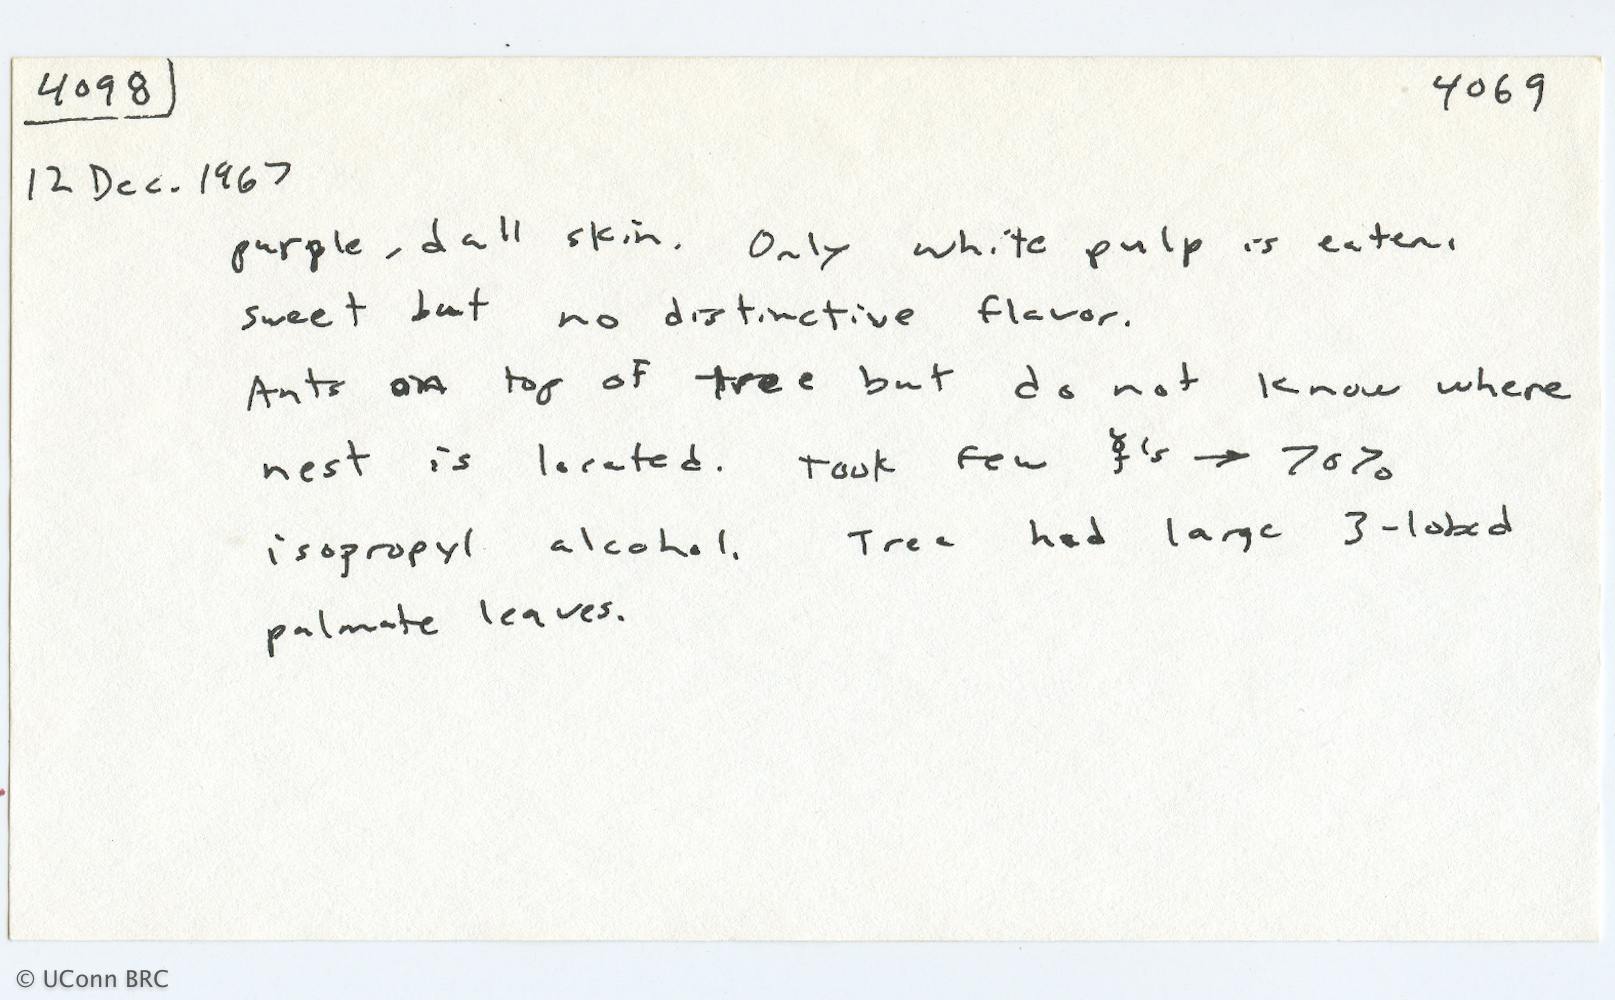 4098 4069
12 Dec. 1967
purple, dull skin. Only white pulp is eaten.
sweet but no distinctive flavor.
Ants on top of tree but do not know where
nest is located. Took few ☿'s → 70%
isopropyl alcohol. Tree had large 3-lobed
palmate leaves.
© UConn BRC